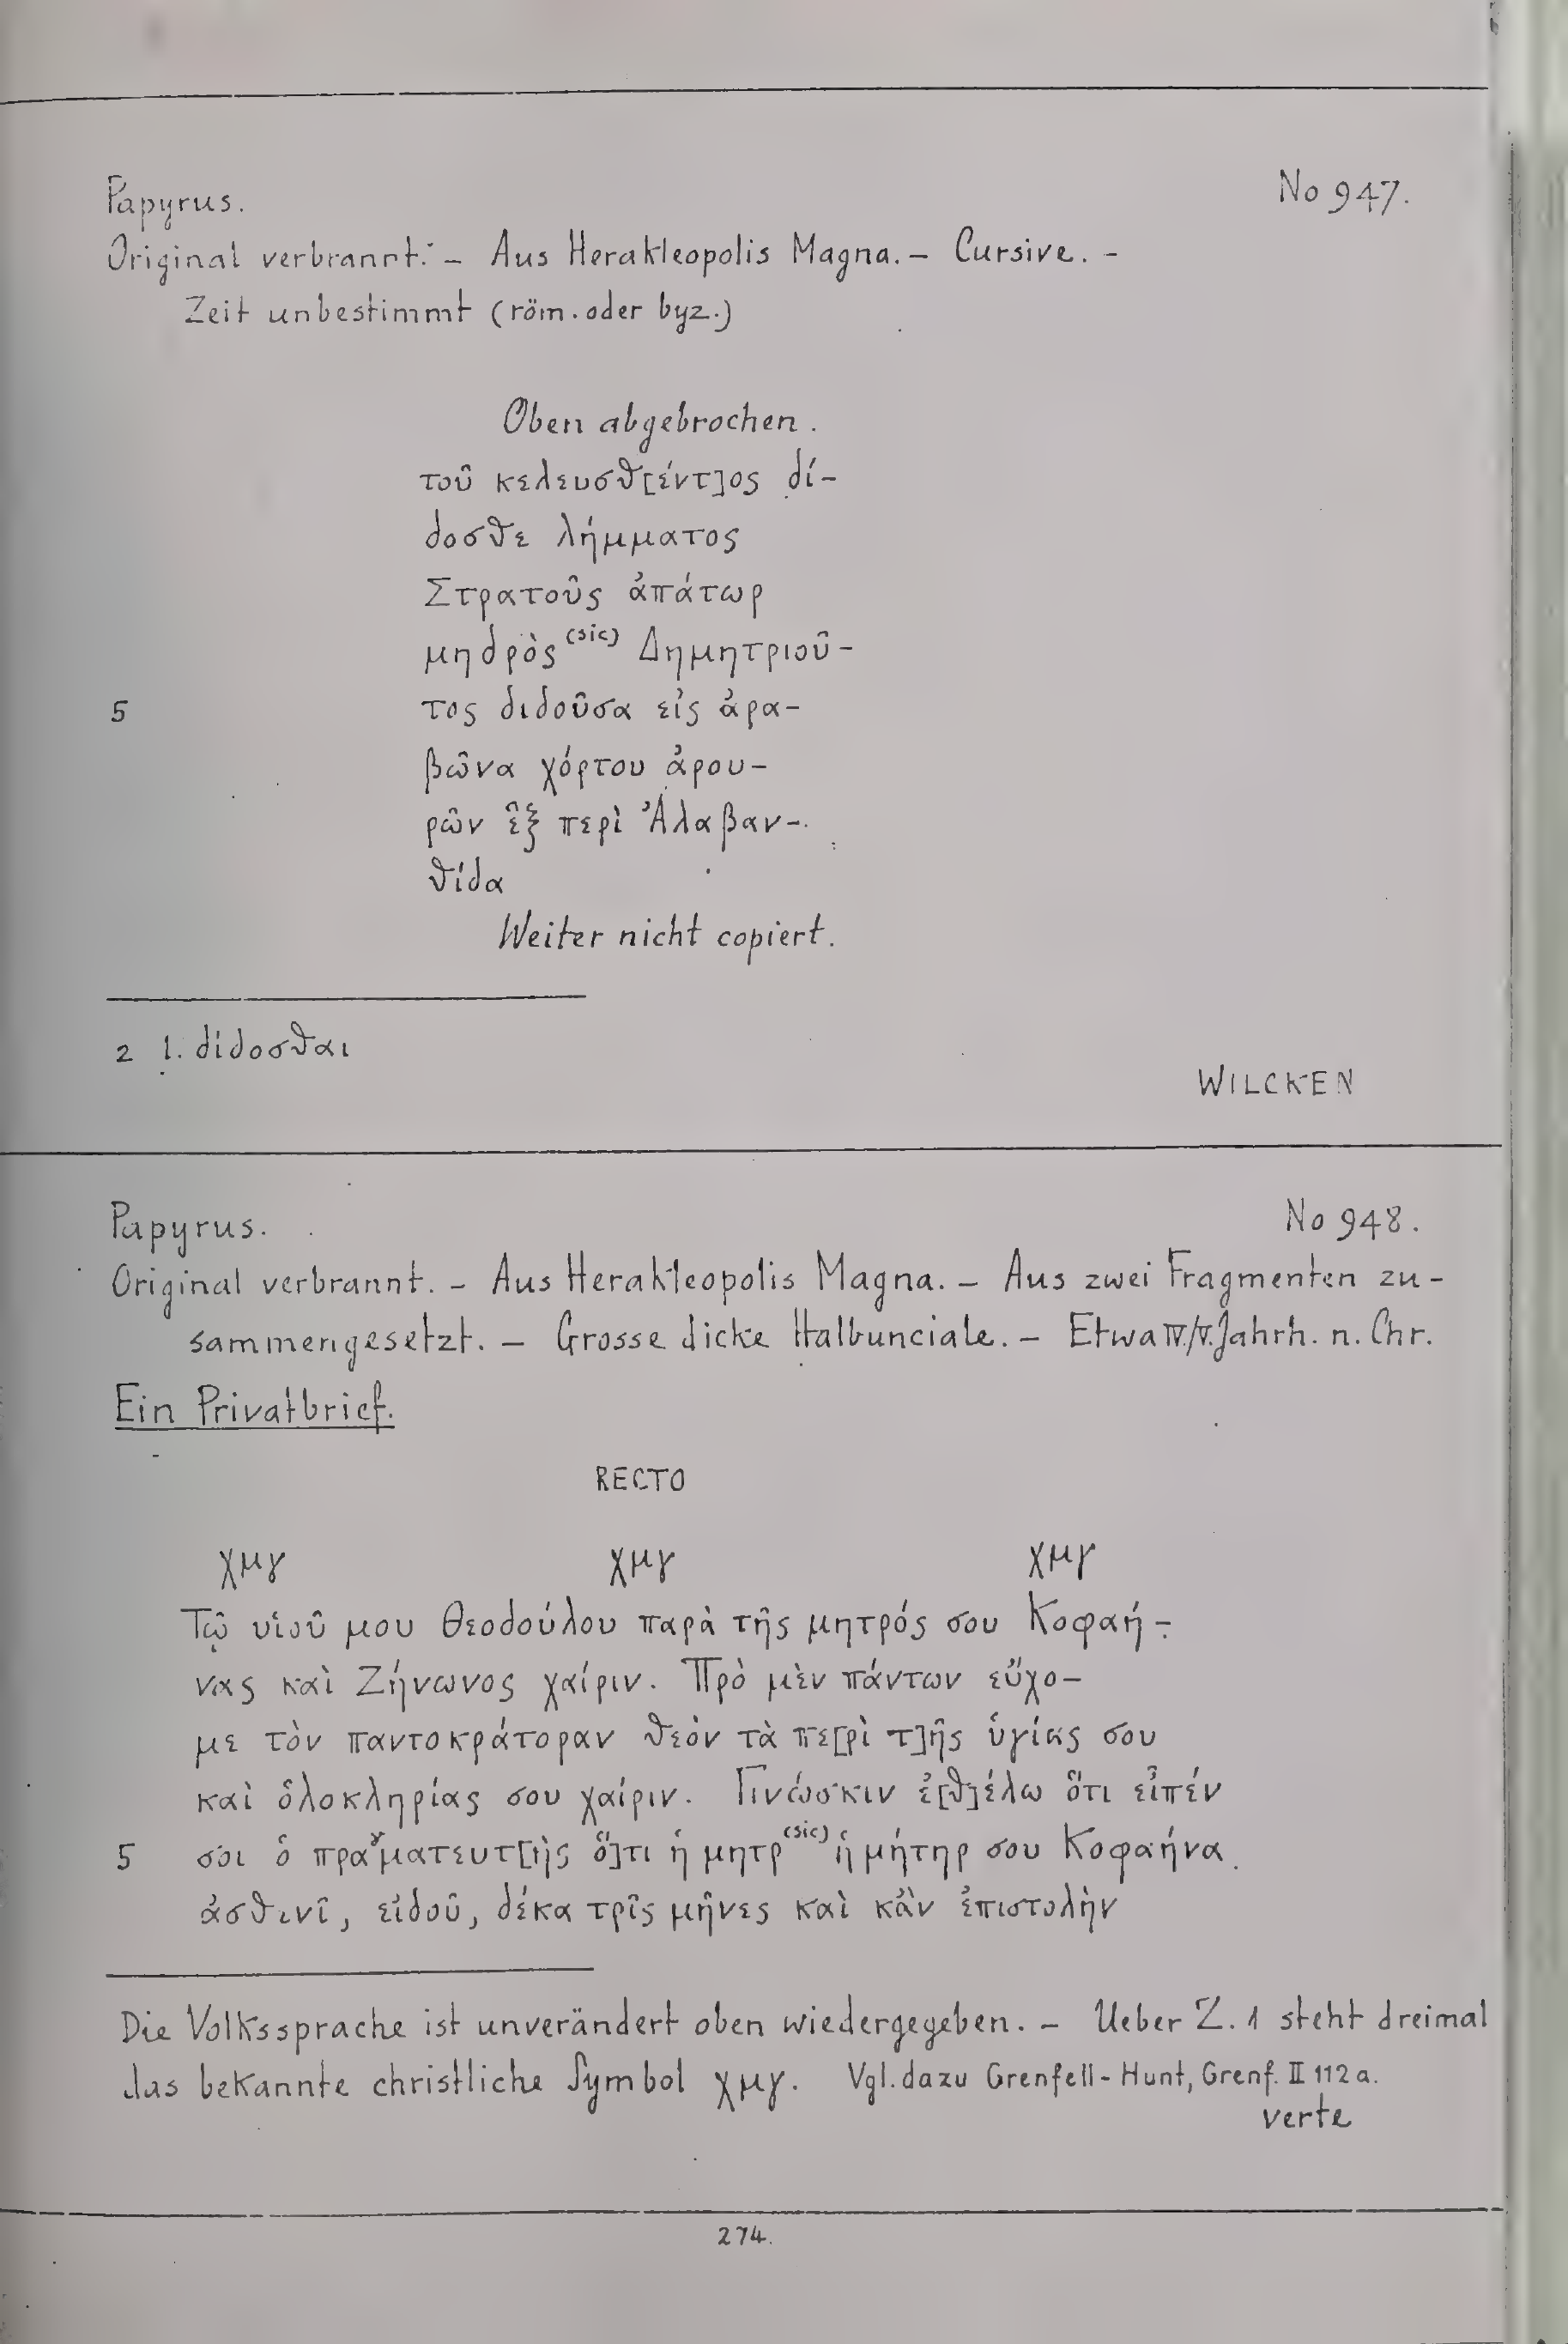 Papyrus.
No 947.
Original verbrannt. – Aus Herakleopolis Magna. – Cursive. –
Zeit unbestimmt (röm. oder byz.)
Oben abgebrochen.
τοῦ κελευσθ[έντ]ος δί-
δοσθε λήμματος
Στρατοῦς ἀπάτωρ
μηδρὸς (sic) Δημητριοῦ-
5 τος διδοῦσα εἰς ἀρα-
βῶνα χόρτου ἀρου-
ρῶν ἓξ περὶ Ἀλαβαν-
θίδα
Weiter nicht copiert.
2 l. δίδοσθαι
WILCKEN
Papyrus.
No 948.
Original verbrannt. – Aus Herakleopolis Magna. – Aus zwei Fragmenten zu-
sammengesetzt. – Grosse dicke Halbunciale. – Etwa IV./V. Jahrh. n. Chr.
Ein Privatbrief.
RECTO
χμγ χμγ χμγ
Τῷ υἱοῦ μου Θεοδούλου παρὰ τῆς μητρός σου Κοφαή-
νας καὶ Ζήνωνος χαίριν. Πρὸ μὲν πάντων εὔχο-
με τὸν παντοκράτοραν θεὸν τὰ πε[ρὶ τ]ῆς ὑγίας σου
καὶ ὁλοκληρίας σου χαίριν. Γινώσκιν ἐ[θ]έλω ὅτι εἶπέν
5 σοι ὁ πραγματευτ[ὴς ὅ]τι ἡ μητρ (sic) ἡ μήτηρ σου Κοφαήνα
ἀσθινῖ, εἰδοῦ, δέκα τρῖς μῆνες καὶ κἂν ἐπιστολὴν
Die Volkssprache ist unverändert oben wiedergegeben. – Ueber Z. 1 steht dreimal
das bekannte christliche Symbol χμγ. Vgl. dazu Grenfell-Hunt, Grenf. II 112 a.
verte
274.